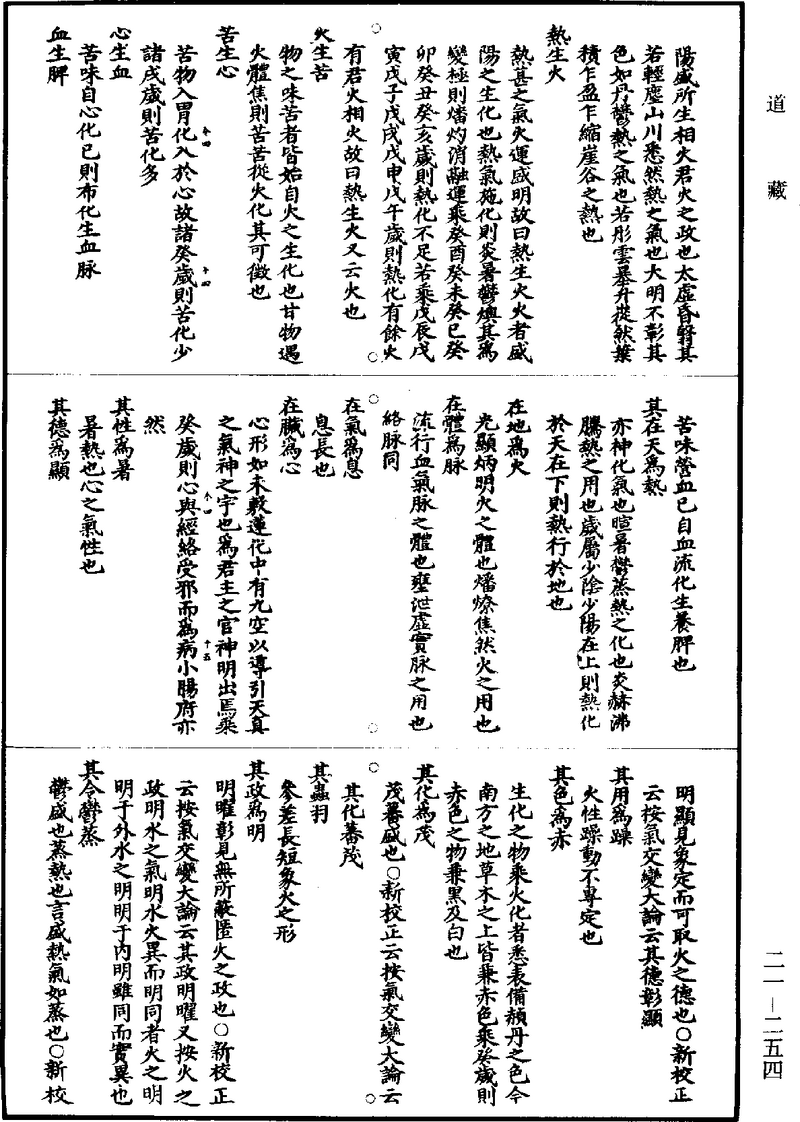 道藏
陽盛所生相火君火之政也太虛昏翳其
若輕塵山川悉然熱之氣也大明不彰其
色如丹鬱熱之氣也若彤雲暴升嵸然葉
積乍盈乍縮崖谷之熱也
熱生火
熱甚之氣火運盛明故曰熱生火火者盛
陽之生化也熱氣施化則炎暑鬱燠其爲
變極則燔灼消融運乘癸酉癸未癸巳癸
卯癸丑癸亥歲則熱化不足若乘戊辰戊
寅戊子戊戌戊申戊午歲則熱化有餘火
有君火相火故曰熱生火又云火也
火生苦
物之味苦者皆始自火之生化也甘物遇
火體焦則苦苦從火化其可徵也
苦生心
苦物入胃化入於心故諸癸歲則苦化少
諸戌歲則苦化多
心生血
苦味自心化已則布化生血脉
血生脾
苦味營血已自血流化生養脾也
其在天爲熱
亦神化氣也暄暑鬱蒸熱之化也炎赫沸
騰熱之用也歲屬少陰少陽在上則熱化
於天在下則熱行於地也
在地爲火
光顯炳明火之體也燔燎焦然火之用也
在體爲脉
流行血氣脉之體也壅泄虛實脉之用也
絡脉同
在氣爲息
息長也
在臟爲心
心形如未敷蓮花中有九空以導引天真
之氣神之宇也爲君主之官神明出焉乘
癸歲則心與經絡受邪而爲病小腸府亦
然
其性爲暑
暑熱也心之氣性也
其德爲顯
明顯見象定而可取火之德也○新校正
云按氣交變大論云其德彰顯
其用爲躁
火性躁動不專定也
其色爲赤
生化之物乘火化者悉表備赬丹之色今
南方之地草木之上皆兼赤色乘癸歲則
赤色之物兼黑及白也
其化爲茂
茂蕃盛也○新校正云按氣交變大論云
其化蕃茂
其蟲羽
參差長短象火之形
其政爲明
明曜彰見無所蔽匿火之政也○新校正
云按氣交變大論云其政明曜又按火之
政明水之氣明水火異而明同者火之明
明于外水之明明于內明雖同而實異也
其令鬱蒸
鬱盛也蒸熱也言盛熱氣如蒸也○新校
二一—二五四